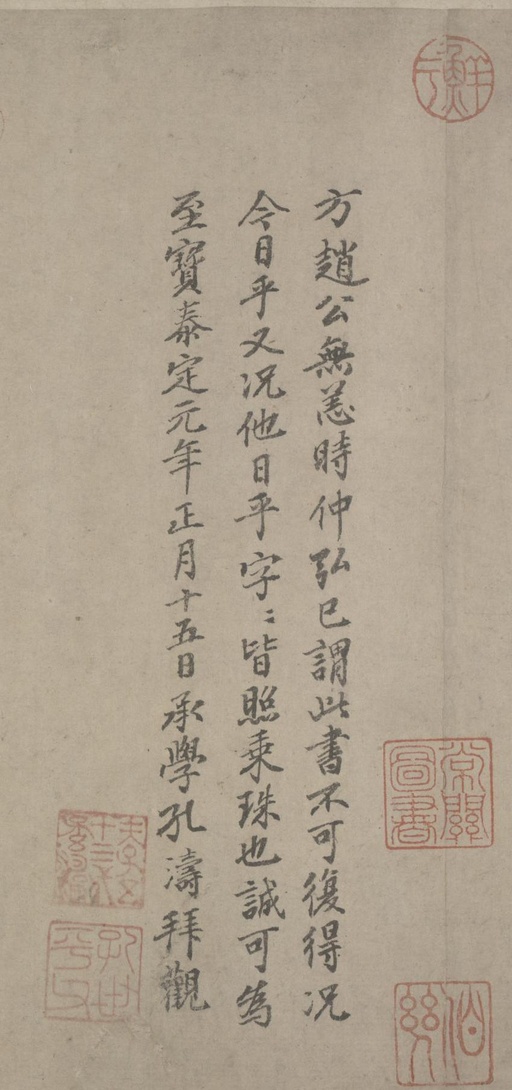 方趙公無恙時仲弘已謂此書不可復得况
今日乎又况他日乎字〻皆照乘珠也誠可為
至寶泰定元年正月十五日承學孔濤拜觀
鮮
常關圖書